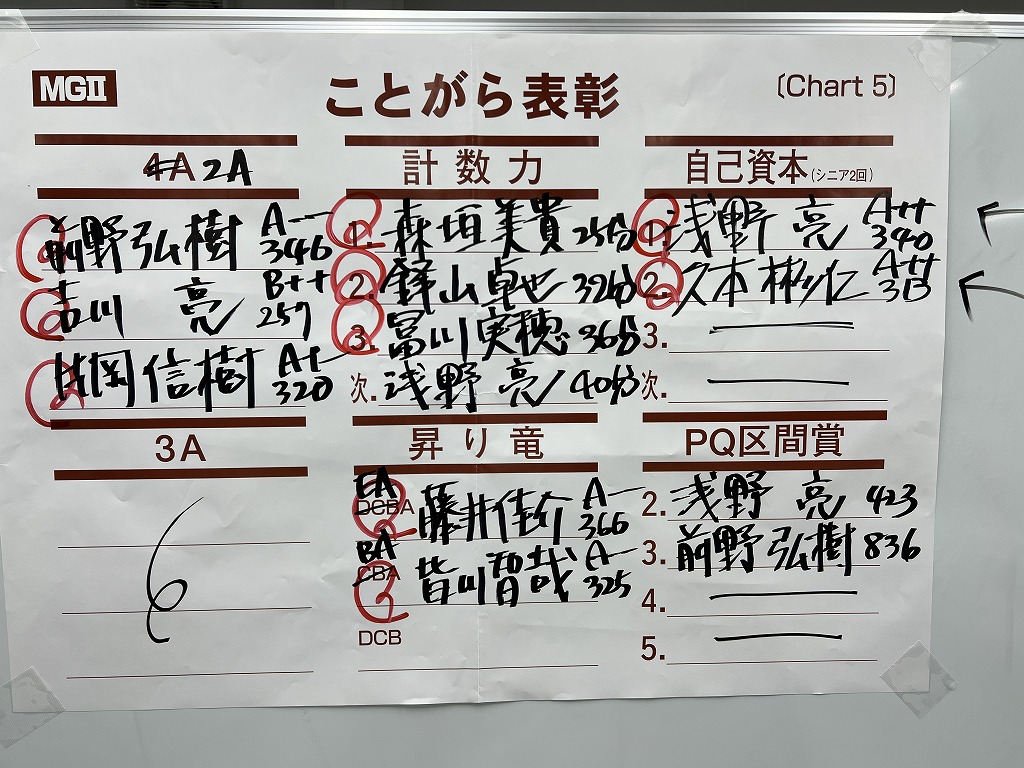 MGⅡ
ことがら表彰
〔Chart 5〕
4A 2A
前野弘樹 A-- 346
吉川 亮 B++ 257
片岡信樹 A+- 320
計数力
1. 森垣美貴 25分
2. 鋒山卓也 32分
3. 冨川実穂 36分
次. 浅野 亮 40分
自己資本(シニア2回)
1. 浅野 亮 A++ 340
2. 久本彬仁 A++
3.
次.
3A
昇り竜
EA DCBA 藤井佳介 A-- 366
BA CBA 皆川智哉 A-- 325
DCB
PQ区間賞
2. 浅野 亮 423
3. 前野弘樹 836
4.
5.